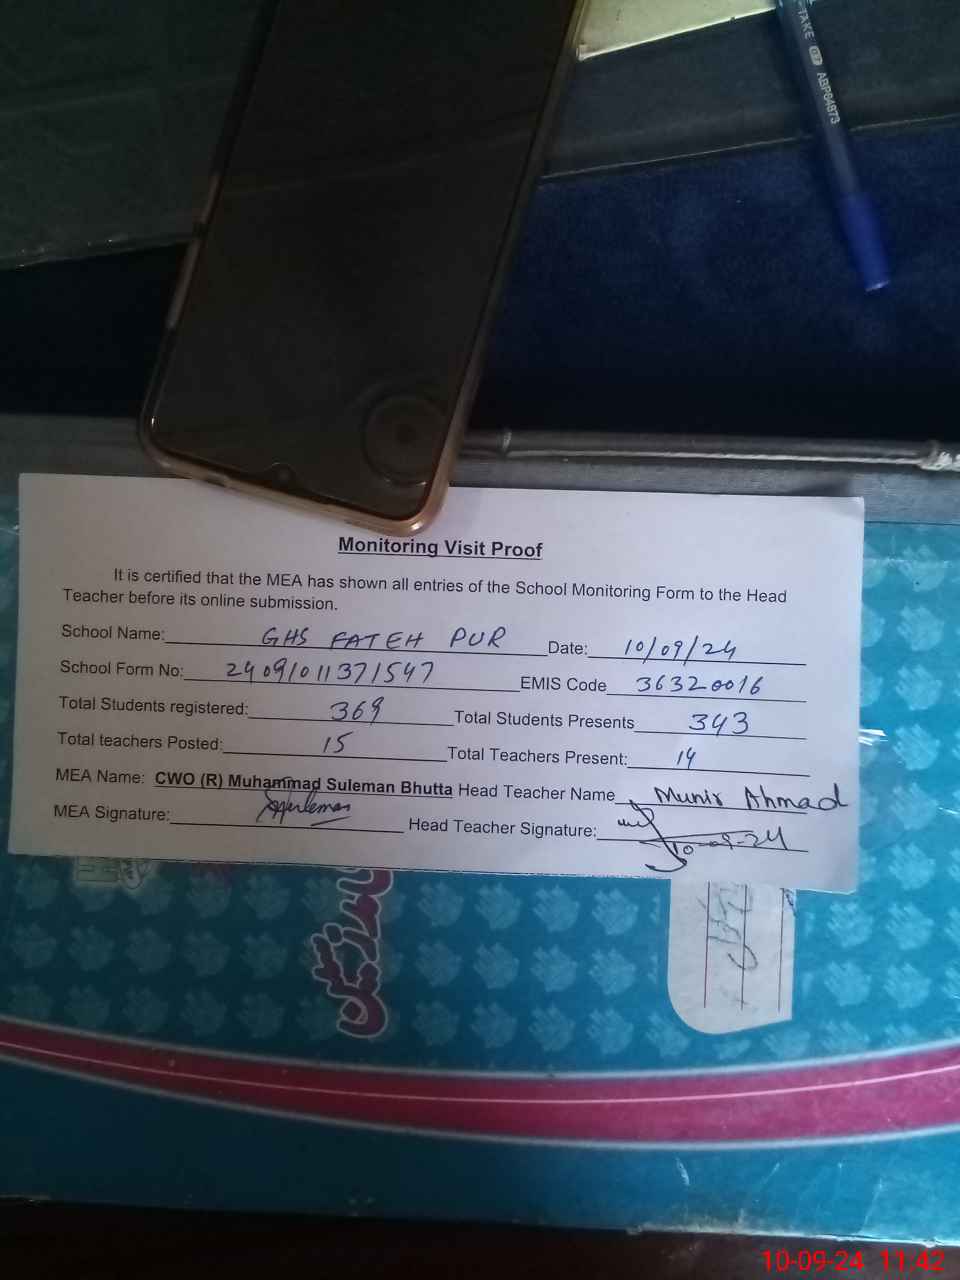 TAKE 0.7 ABP64873
Monitoring Visit Proof
It is certified that the MEA has shown all entries of the School Monitoring Form to the Head
Teacher before its online submission.
School Name: GHS FATEH PUR Date: 10/09/24
School Form No: 24091011371547 EMIS Code 36320016
Total Students registered: 369 Total Students Presents 343
Total teachers Posted: 15 Total Teachers Present: 14
MEA Name: CWO (R) Muhammad Suleman Bhutta Head Teacher Name Munir Ahmad
MEA Signature: Suleman Head Teacher Signature: 10-09-24
10-09-24 11:42